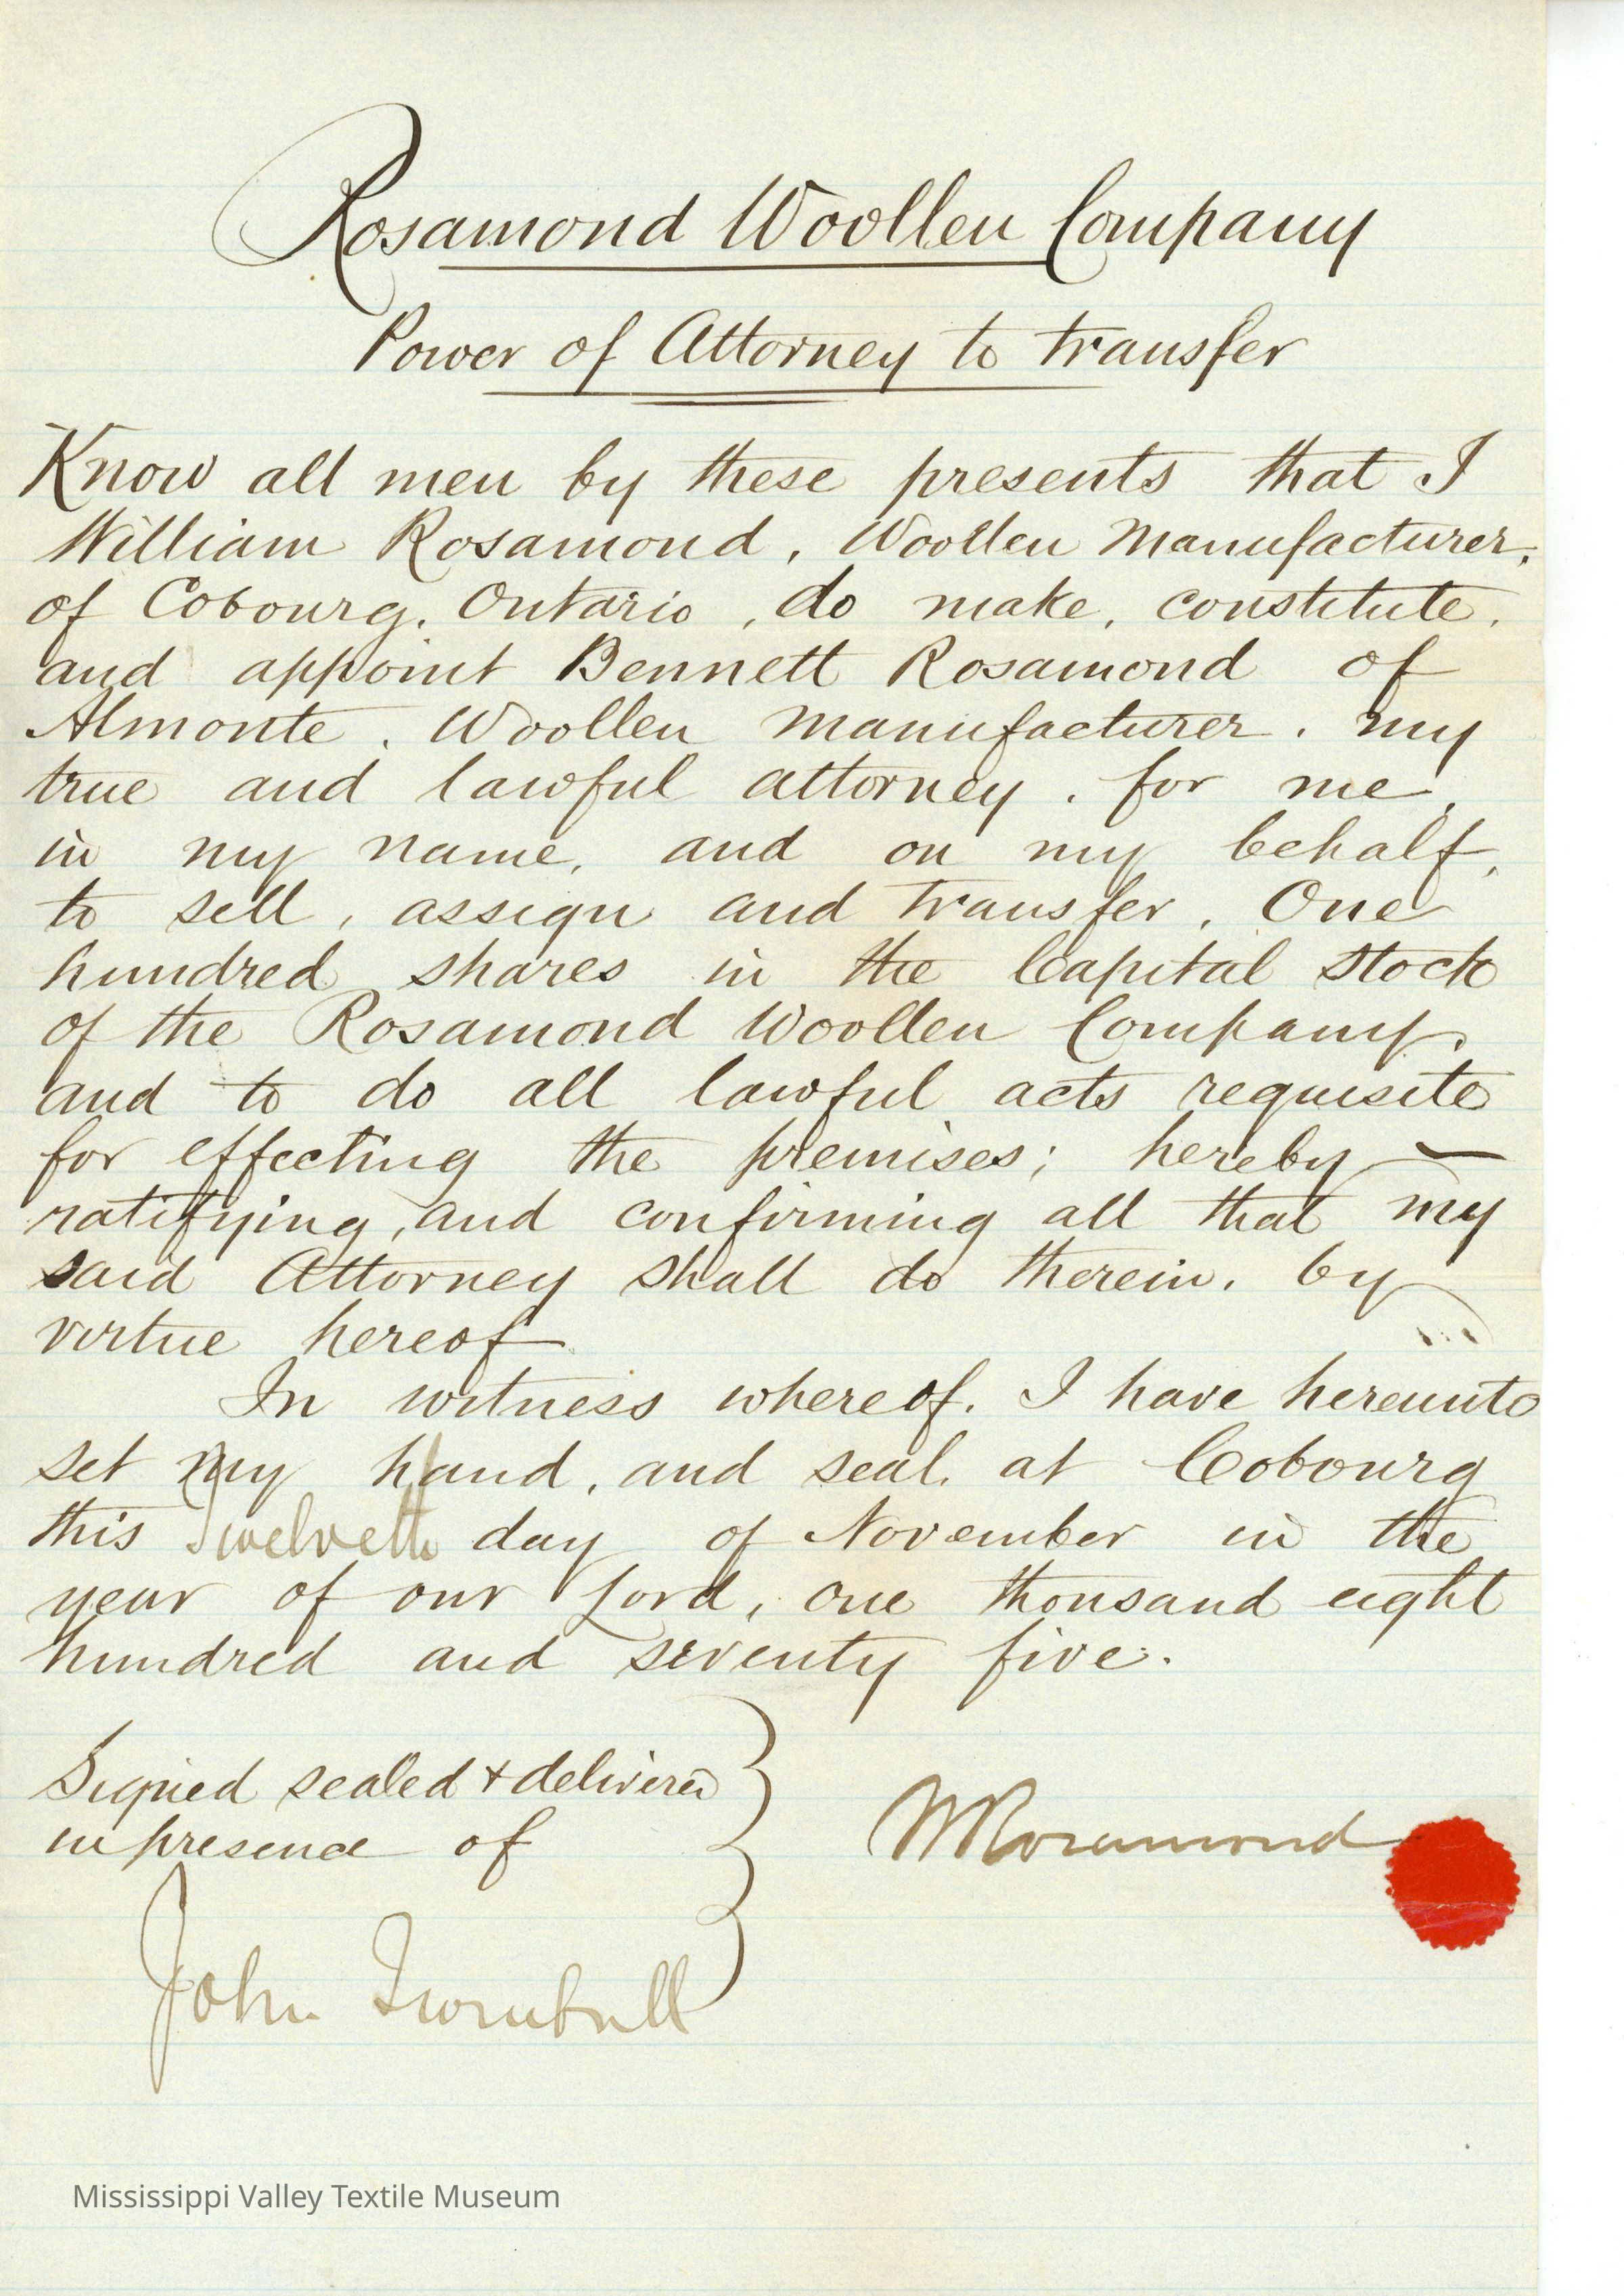 Rosamond Woollen Company
Power of Attorney to transfer
Know all men by these presents that I
William Rosamond, Woollen Manufacturer,
of Cobourg, Ontario, do make, constitute,
and appoint Bennett Rosamond of
Almonte, Woollen Manufacturer, my
true and lawful attorney, for me,
in my name, and on my behalf,
to sell, assign and transfer, One
hundred shares in the Capital Stock
of the Rosamond Woollen Company,
and to do all lawful acts requisite
for effecting the premises; hereby —
ratifying, and confirming all that my
said Attorney shall do therein, by
virtue hereof
In witness whereof, I have hereunto
set my hand, and seal, at Cobourg
this Twelveth day of November in the
year of our Lord, one thousand eight
hundred and seventy five.
Signed sealed + delivered
in presence of
WRosamond
John Turnbull
Mississippi Valley Textile Museum